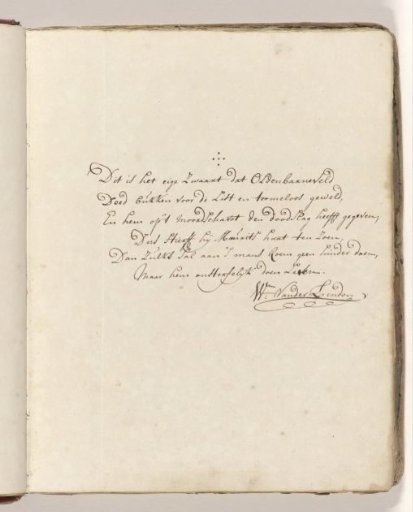 Dit is het eige Zwaart dat Oldenbarneveld
Deed bukken voor de List en tromeloos geweld,
En hem op't moordschavot den doodslag heefft gegeven,
Dus Stierff hij Maurits haat ten Zoen,
Dan Zulks Zal aan 's mans Roem geen hinder doen,
Maar hem onsterfelijk doen Leven.
Wm. Vander